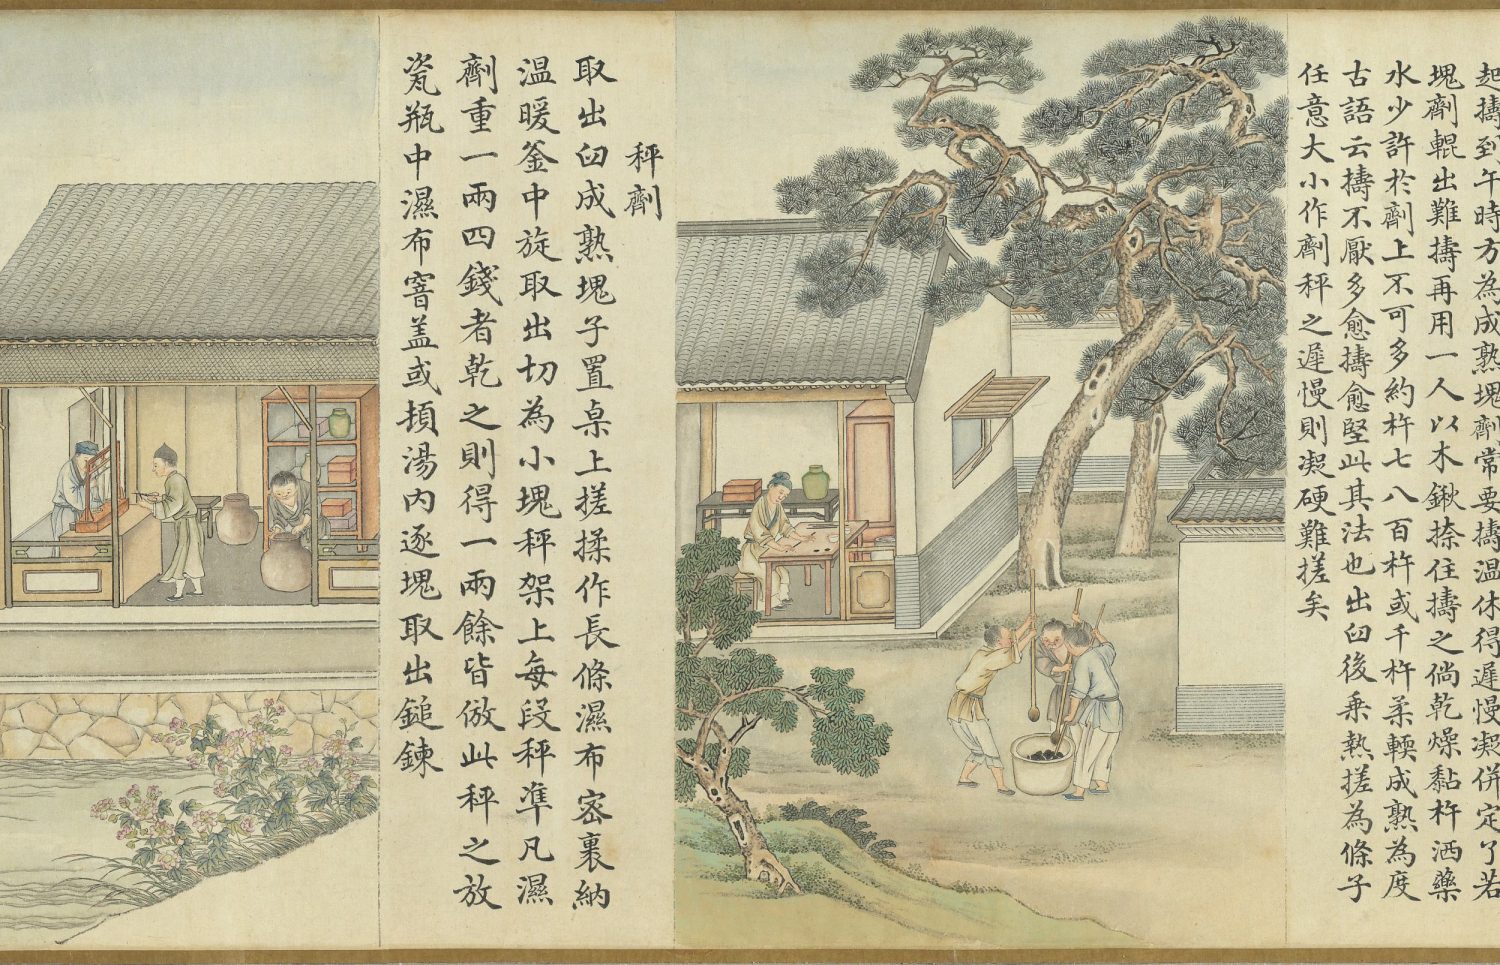 起擣到午時方為成熟塊劑常要擣溫休得遲慢凝併定了若
塊劑輥出難擣再用一人以木鍬捺住擣之倘乾燥黏杵洒藥
水少許於劑上不可多約杵七八百杵或千杵柔輭成熟為度
古語云擣不厭多愈擣愈堅此其法也出臼後乗熱搓為條子
任意大小作劑秤之遲慢則凝硬難搓矣
秤劑
取出臼成熟塊子置桌上搓揉作長條濕布密裏納
温暖釜中旋取出切為小塊秤架上每段秤準凡濕
劑重一兩四錢者乾之則得一兩餘皆倣此秤之放
瓷瓶中濕布窨盖或頓湯內逐塊取出鎚鍊